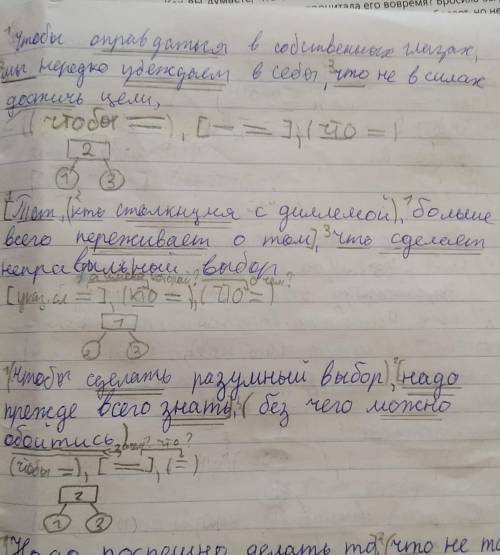 прочитала его вовремя? Бросила
1 Чтобы оправдаться в собственных глазах,
2 мы нередко убеждаем в себы, 3 что не в силах
достичь цели,
( чтобы = ), [ — = ], ( что = )
2
1 3
1 [Тот, 2 (кто столкнулся с диллемой), 1 больше
всего переживает о том], 3 что сделает
неправвыльный выбор
[указ.сл = ], (кто = ), (что = )
1
2 3
1 (Чтобы сделать разумный выбор), 2 [надо
прежде всего знать, 3 ( без чего можно
обойтись)
(чтобы =), [ = ], ( = )
2
1 3
1 Надо поспешно делать то 2 (что не